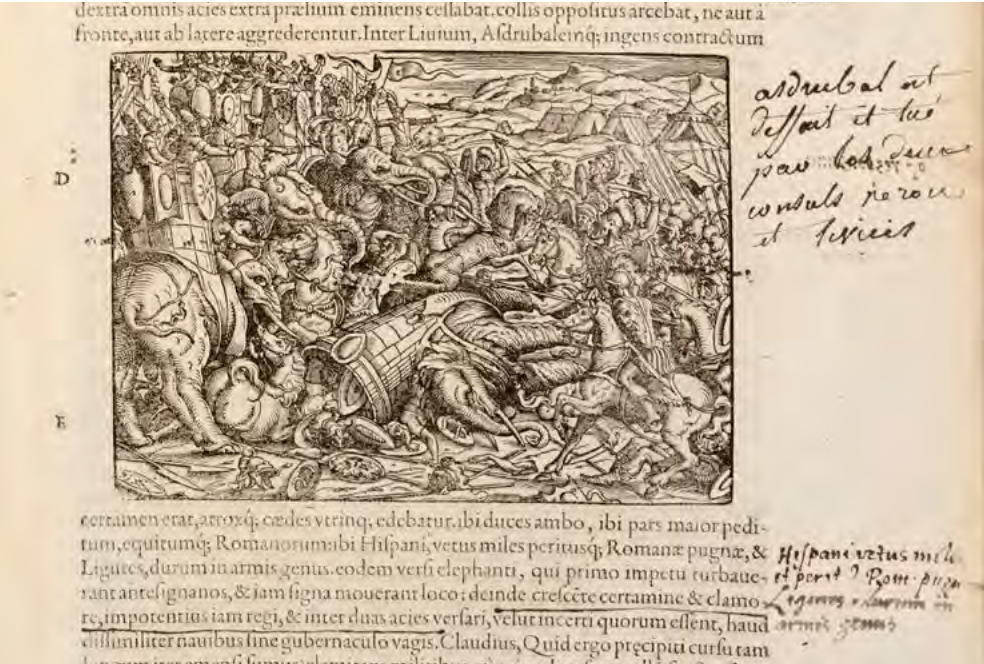 dextra omnis acies extra prælium eminens cessabat. collis oppositus arcebat, ne aut à
fronte, aut ab latere aggrederentur. Inter Liuium, Asdrubalemq; ingens contractum
asdrubal est
deffait et tué
par les deux
consuls neron
et
D
E
certamen erat, atroxq; cædes vtrinq; edebatur. ibi duces ambo, ibi pars maior pedi-
tum, equitumq; Romanorum: ibi Hispani, vetus miles peritusq; Romanæ pugnæ, &
Ligures, durum in armis genus. eodem versi elephanti, qui primo impetu turbaue-
rant antesignanos, & iam signa mouerant loco: deinde crescẽte certamine & clamo
re, impotentius iam regi, & inter duas acies versari, velut incerti quorum essent, haud
dissimiliter nauibus sine gubernaculo vagis. Claudius, Quid ergo pręcipiti cursu tam
Hispani vetus mil
et perit Rom. pugn
Ligures durum in
armis genus